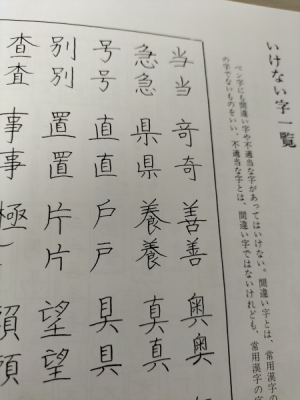 いけない字一覧
ペン字にも間違い字や不適当な字があってはいけない。間違い字とは、常用漢字の
の字でないものをいい、不適当な字とは、間違い字ではないけれども、常用漢字の字
当当 奇奇 善善 奥奥
急急 県県 養養 真真
号号 直直 戸戸 具具
別別 置置 片片 望望
査査 事事 極 須須